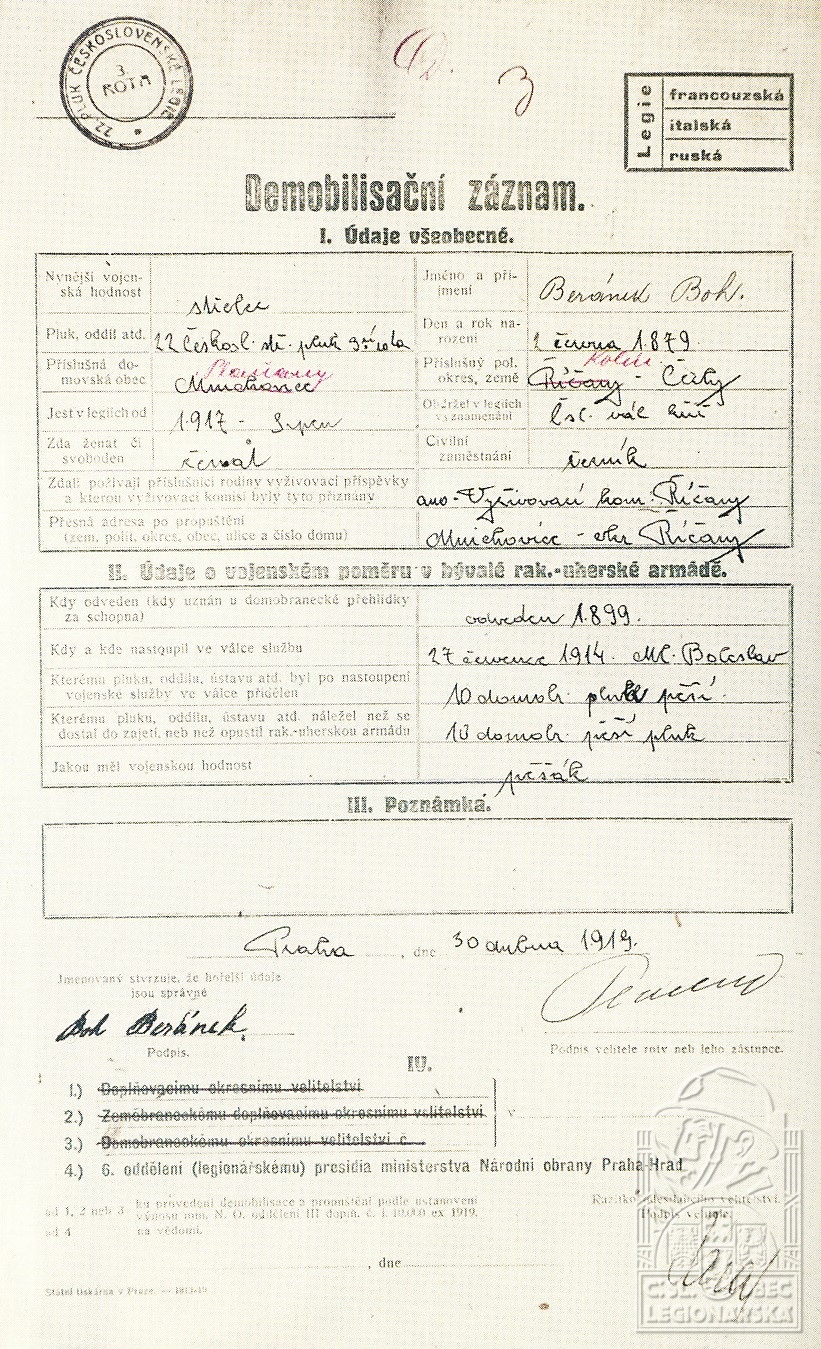 22. PLUK ČESKOSLOVENSKÉ LEGIE
3.
ROTA
3
Legie
francouzská
italská
ruská
Demobilisační záznam.
I. Údaje všeobecné.
Nynější vojen-
ská hodnost
střelec
Jméno a pří-
jmení
Beránek Boh.
Pluk, oddíl atd.
22 českosl. stř. pluk 3tí rota
Den a rok na-
rození
2 června 1.879.
Příslušná do-
movská obec
Mnichovice
Příslušný pol.
okres, země
Kolín
Říčany - Čechy
Jest v legiích od
1.917 - Srpen
Obdržel v legiích
vyznamenání
čsl. vál. kříž
Zda ženat či
svoboden
ženat
Civilní
zaměstnání
Zdali požívají příslušníci rodiny vyživovací příspěvky
a kterou vyživovací komisí byly tyto přiznány
ano - Vyživovací kom. Říčany
Přesná adresa po propuštění
(zem, polit. okres, obec, ulice a číslo domu)
Mnichovice - okr Říčany
II. Údaje o vojenském poměru v bývalé rak.-uherské armádě.
Kdy odveden (kdy uznán u domobranecké přehlídky
za schopna)
odveden 1.899.
Kdy a kde nastoupil ve válce službu
27 července 1914. Ml. Boleslav
Kterému pluku, oddílu, ústavu atd. byl po nastoupení
vojenské služby ve válce přidělen
10 domobr. pluk pěší.
Kterému pluku, oddílu, ústavu atd. náležel než se
dostal do zajetí, neb než opustil rak.-uherskou armádu
10 domobr. pěší pluk
Jakou měl vojenskou hodnost
pěšák
III. Poznámka.
Praha, dne 30 dubna 1919.
Jmenovaný stvrzuje, že hořejší údaje
jsou správné
Boh Beránek.
Podpis.
Podpis velitele roty neb jeho zástupce.
IV.
1.) Doplňovacímu okresnímu velitelství
2.) Zeměbraneckému doplňovacímu okresnímu velitelství v
3.) Domobraneckému okresnímu velitelství č.
4.) 6. oddělení (legionářskému) presidia ministerstva Národní obrany Praha-Hrad
ad 1, 2 neb 3 ku provedení demobilisace a propuštění podle ustanovení
výnosu min. N. O. oddělení III doplň. č. j. 10.000 ex 1919.
ad 4 na vědomí.
Razítko velitelství.
Podpis velitele.
, dne
Státní tiskárna v Praze. —
ČSL. OBEC
LEGIONÁŘSKÁ